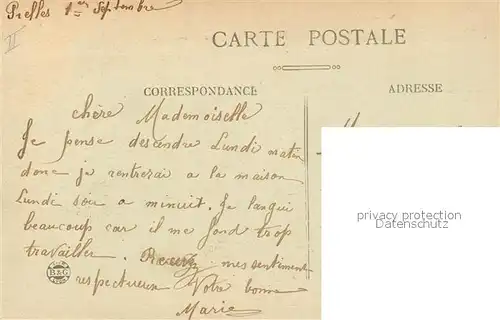 Prelles 1er Septembre
II
CARTE POSTALE
CORRESPONDANCE
ADRESSE
chère Mademoiselle
Je pense desendre Lundi matin
donc je rentrerai a la maison
Lundi soir a minuit. Je langui
beaucoup car il me fond trop
travailler. Recevez mes sentiment
respectueux Votre bonne
Marie
B&G
privacy protection
Datenschutz